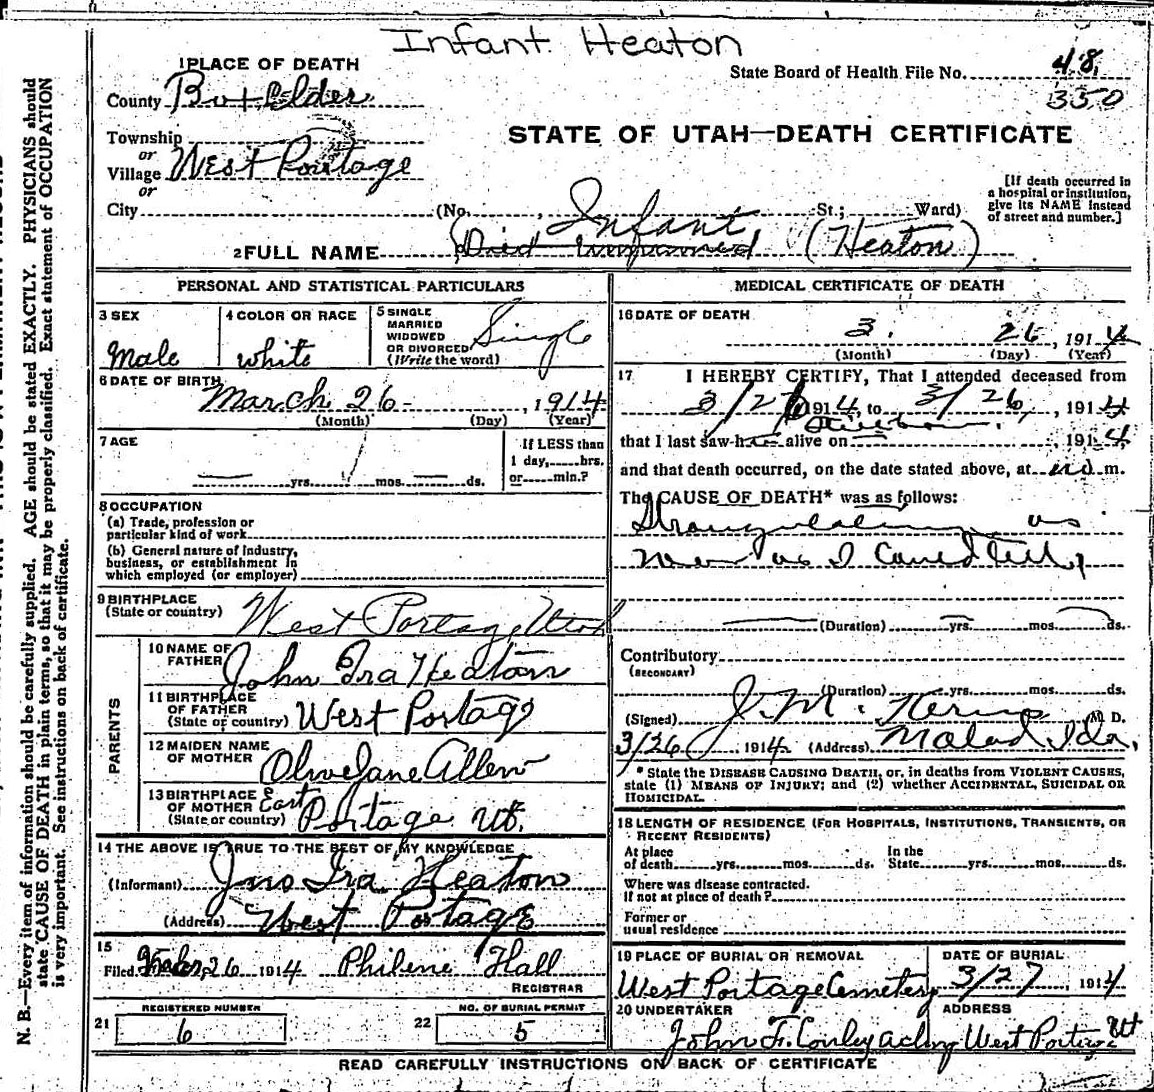 Infant Heaton
1 PLACE OF DEATH
State Board of Health File No. 48
350
County Box Elder
STATE OF UTAH—DEATH CERTIFICATE
Township
or
Village West Portage
or
City (No. , St.; Ward)
[If death occurred in
a hospital or institution,
give its NAME instead
of street and number.]
Infant
2 FULL NAME Died Unnamed (Heaton)
PERSONAL AND STATISTICAL PARTICULARS
3 SEX
Male
4 COLOR OR RACE
white
5 SINGLE
MARRIED
WIDOWED
OR DIVORCED
(Write the word)
Single
6 DATE OF BIRTH
March 26 , 1914
(Month) (Day) (Year)
7 AGE
yrs. mos. ds.
If LESS than
1 day, hrs.
or min.?
8 OCCUPATION
(a) Trade, profession or
particular kind of work
(b) General nature of Industry,
business, or establishment in
which employed (or employer)
9 BIRTHPLACE
(State or country) West Portage Utah
PARENTS
10 NAME OF
FATHER John Ira Heaton
11 BIRTHPLACE
OF FATHER
(State or country) West Portage
12 MAIDEN NAME
OF MOTHER Olive Jane Allen
13 BIRTHPLACE
OF MOTHER East
(State or country) Portage Ut.
14 THE ABOVE IS TRUE TO THE BEST OF MY KNOWLEDGE
(Informant) Jno Ira Heaton
(Address) West Portage
15
Filed 26 1914 Philene Hall
REGISTRAR
REGISTERED NUMBER
21 6
NO. OF BURIAL PERMIT
22 5
MEDICAL CERTIFICATE OF DEATH
16 DATE OF DEATH
3. 26 , 1914
(Month) (Day) (Year)
17 I HEREBY CERTIFY, That I attended deceased from
3/26 1914, to 3/26 , 1914
Stillborn
that I last saw h alive on , 1914
and that death occurred, on the date stated above, at m.
The CAUSE OF DEATH* was as follows:
as
as I could tell
(Duration) yrs. mos. ds.
Contributory
(SECONDARY)
(Duration) yrs. mos. ds.
(Signed) J. M. M. D.
3/26 , 1914 (Address) Malad Ida.
* State the DISEASE CAUSING DEATH, or, in deaths from VIOLENT CAUSES,
state (1) MEANS OF INJURY; and (2) whether ACCIDENTAL, SUICIDAL OR
HOMICIDAL.
18 LENGTH OF RESIDENCE (FOR HOSPITALS, INSTITUTIONS, TRANSIENTS, OR
RECENT RESIDENTS)
At place
of death yrs. mos. ds.
In the
State yrs. mos. ds.
Where was disease contracted.
if not at place of death?
Former or
usual residence
19 PLACE OF BURIAL OR REMOVAL
West Portage Cemetery
DATE OF BURIAL
3/27 , 1914
20 UNDERTAKER
John F. Conley acting
ADDRESS
West Portage Ut
READ CAREFULLY INSTRUCTIONS ON BACK OF CERTIFICATE
N. B.—Every item of information should be carefully supplied. AGE should be stated EXACTLY. PHYSICIANS should
state CAUSE OF DEATH in plain terms, so that it may be properly classified. Exact statement of OCCUPATION
is very important. See instructions on back of certificate.